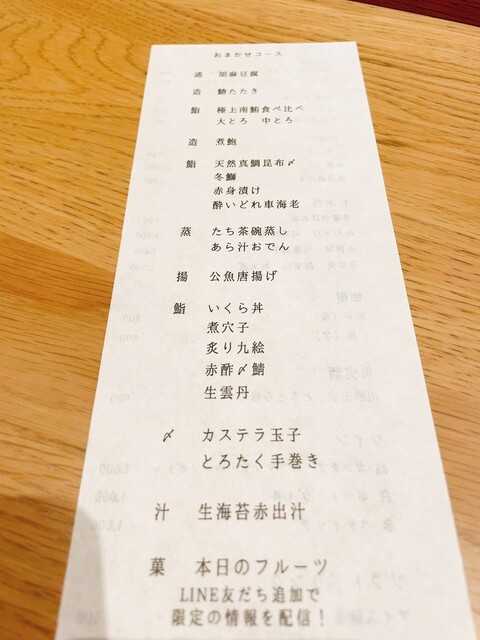 おまかせコース
逸 胡麻豆腐
造 鰆たたき
鮨 極上南鮪食べ比べ
大とろ 中とろ
造 煮鮑
鮨 天然真鯛昆布〆
冬鰤
赤身漬け
酔いどれ車海老
蒸 たち茶碗蒸し
あら汁おでん
揚 公魚唐揚げ
鮨 いくら丼
煮穴子
炙り九絵
赤酢〆鯖
生雲丹
〆 カステラ玉子
とろたく手巻き
汁 生海苔赤出汁
菓 本日のフルーツ
LINE友だち追加で
限定の情報を配信!